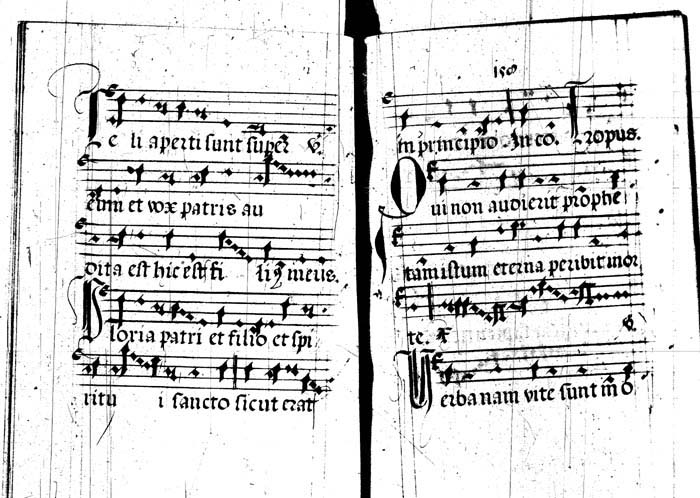 Celi aperti sunt super ℣.
eum et vox patris au
dita est hic est fi liꝰ meus.
Gloria patri et filio et spi
ritu i sancto sicut erat
158
in principio In cō. Tropus.
Qui non audierit prophe
tam istum eterna peribit mor
te. ℣.
Verba nam vite sunt in o